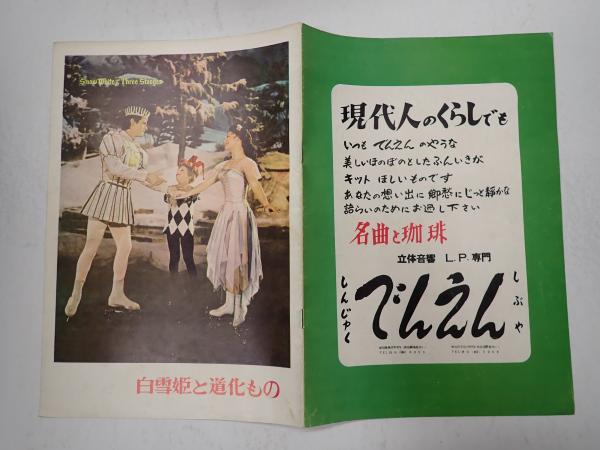 Snow White & Three Stooges
白雪姫と道化もの
現代人のくらしでも
いつも でんえん のやうな
美しいほのぼのとしたふんいきが
キット ほしいものです
あなたの想い出に 郷愁に じっと静かな
語らいのためにお過し下さい
名曲と珈琲
立体音響 L.P.専門
しんじゅく
でんえん
しぶや